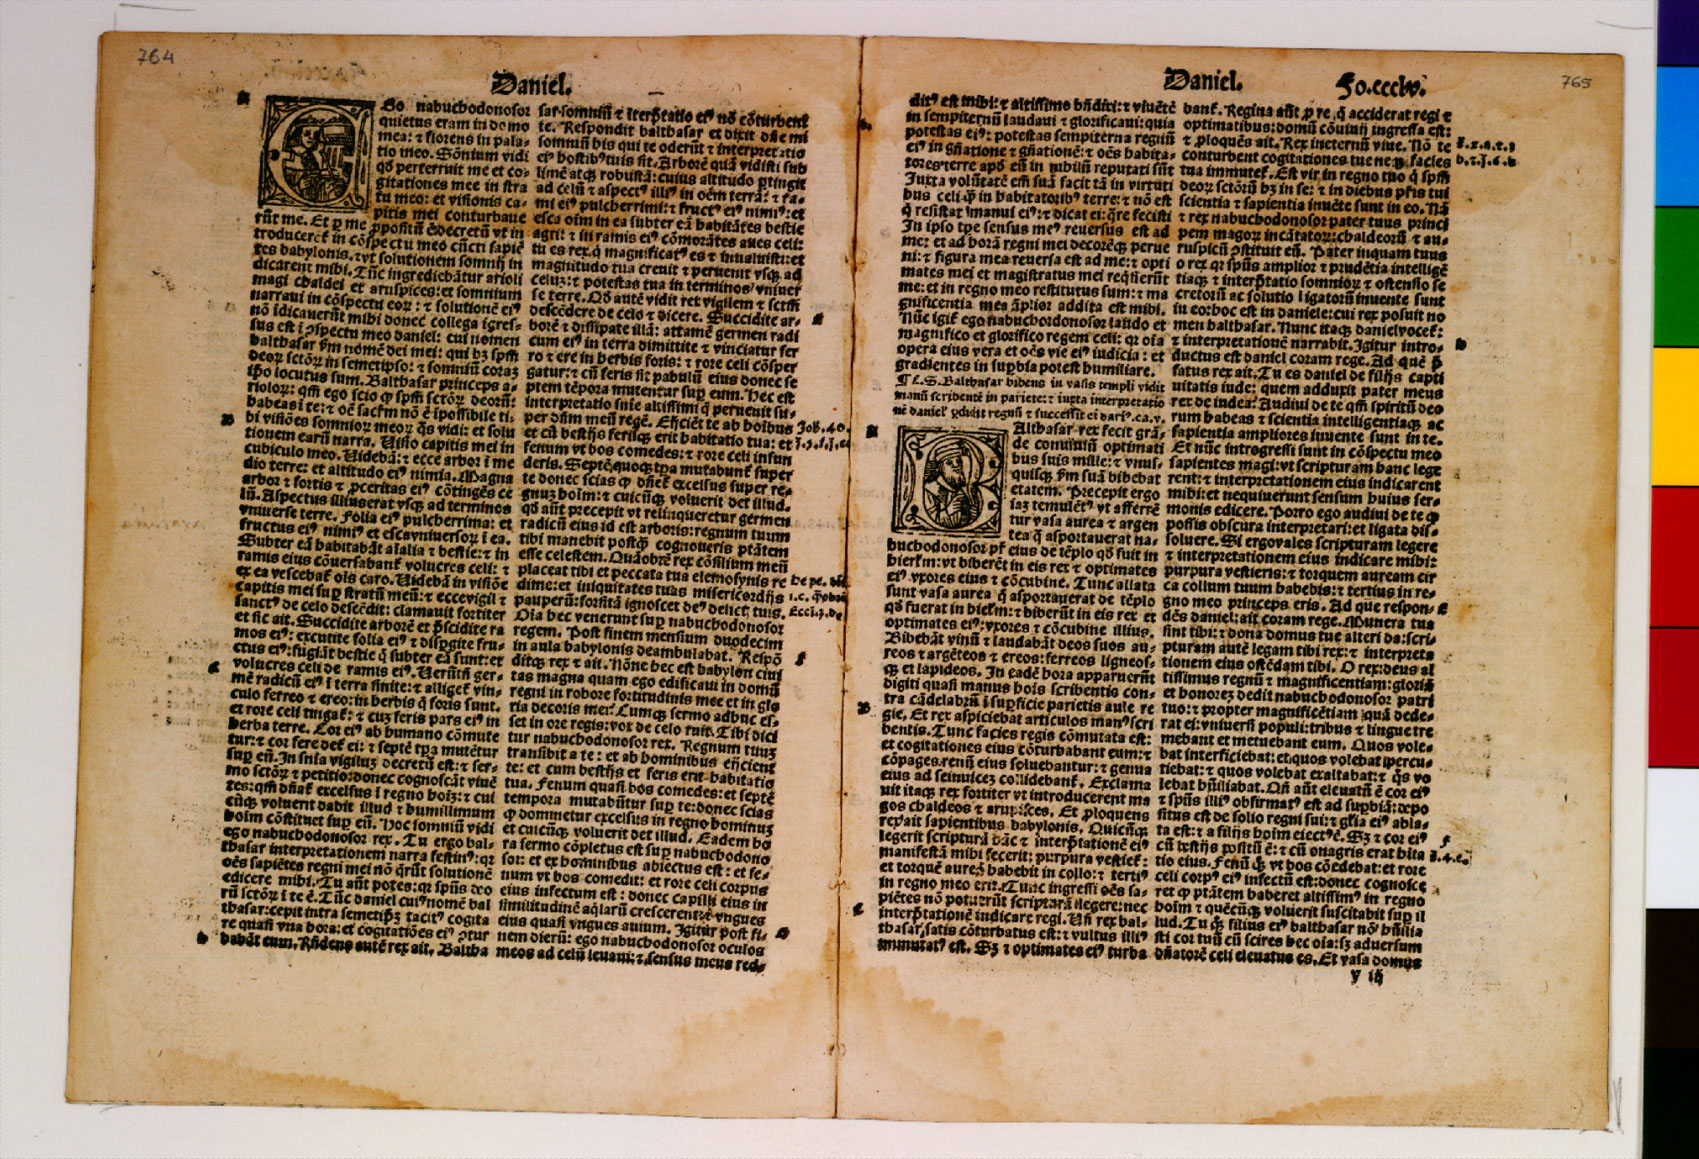 764
Daniel.
EGo nabuchodonosor
quietus eram in domo
mea: ⁊ florens in pala-
tio meo. Sõnium vidi
qđ perterruit me et co-
gitationes mee in stra
tu meo: et visionis ca-
pitis mei conturbaue
rũt me. Et ꝑ me ꝓpositũ ẽ decretũ vt in
troducerẽt in cõspectu meo cũcti sapiẽ
tes babylonis. ⁊ vt solutionem somnij in
dicarent mihi. Tũc ingrediebãtur arioli
magi chaldei et aruspices: et somnium
narraui in cõspectu eoꝝ: ⁊ solutionẽ eiꝰ
nõ idicauerũt mihi donec collega igres-
sus est i ꝯspectu meo daniel: cui nomen
balthasar ẜm nomẽ dei mei: qui hꝫ spm̃
deoꝝ sctõꝝ in semetipso: ⁊ somniũ coraꝫ
ip̃o locutus sum. Balthasar princeps a-
riolorꝝ: qm̃ ego scio ꝙ spm̃ sctõꝝ deorũ:
habeas i te: ⁊ oẽ sacr̃m nõ ẽ ipossibile ti-
bi visiões somnioꝝ meoꝝ q̃s vidi: et solu
tionem earũ narra. Uisio capitis mei in
cubiculo meo. Uidebã: ⁊ ecce arbor i me
dio terre: et altitudo eiꝰ nimia. Magna
arbor ⁊ fortis ⁊ ꝓceritas eiꝰ cõtingẽs ce
lũ. Aspectus illiꝰ erat vsqꝫ ad terminos
vniuerse terre. Folia eiꝰ pulcherrima: et
fructus eiꝰ nimiꝰ: et esca vniuersoꝝ i ea.
Subter eã habitabãt aĩalia ⁊ bestie: ⁊ in
ramis eius cõuersabant̃ volucres celi: ⁊
ex ea vescebat̃ oĩs caro. Uidebã in visiõe
capitis mei suꝑ stratũ meũ: ⁊ ecce vigil ⁊
sanctꝰ de celo descẽdit: clamauit fortiter
et sic ait. Succidite arborẽ et p̃scidite ra
mos eiꝰ: excutite folia eiꝰ ⁊ disꝑgite fru-
ctus eiꝰ: fugiãt bestie q̃ subter eã sunt: et
volucres celi de ramis eiꝰ. Uerũtñ ger-
mẽ radicũ eiꝰ i terra sinite: ⁊ alliget̃ vin-
culo ferreo ⁊ ereo: in herbis q̃ foris sunt.
et rore celi tingat̃: ⁊ cuꝫ feris pars eiꝰ in
herba terre. Cor eiꝰ ab humano cõmute
tur: ⁊ cor fere det̃ ei: ⁊ septẽ tꝑa mutẽtur
suꝑ eũ. In snĩa vigiluꝫ decretũ est: ⁊ ser-
mo sctõꝝ ⁊ petitio: donec cognoscãt viuẽ
tes: qm̃ dñat̃ excelsus i regno hoĩꝫ: ⁊ cui
cũqꝫ voluerit dabit illud ⁊ humillimum
hoĩm cõstituet suꝑ eũ. Hoc somniũ vidi
ego nabuchodonosor rex. Tu ergo bal-
thasar interpretationem narra festinꝰ: qꝛ
oẽs sapiẽtes regni mei nõ q̃rũt solutionẽ
edicere mihi. Tu aũt potes: qꝛ spũs deo
rũ sctõꝝ i te ẽ. Tũc daniel cuiꝰ nomẽ bal
thasar: cepit intra semetip̃ꝫ tacitꝰ cogita
re quasi vna hora: et cogitatiões eiꝰ ꝯtur
babãt eum. Rñdens autẽ rex ait. Baltha
sar: somniũ ⁊ iterp̃tatio eiꝰ nõ cõturbent
te. Respondit balthasar et dixit dñe mi
somniũ his qui te oderũt ⁊ interpretatio
eiꝰ hostibꝰ tuis sit. Arborẽ quã vidisti sub
limẽ atqꝫ robustã: cuius altitudo ꝑtingit
ad celũ ⁊ aspectꝰ illiꝰ in oẽm terrã: ⁊ ra-
mi eiꝰ pulcherrimi: ⁊ fructꝰ eiꝰ nimiꝰ: et
esca oĩm in ea subter eã habitãtes bestie
agri: ⁊ in ramis eiꝰ cõmorãtes aues celi:
tu es rex q̃ magnificatꝰ es ⁊ inualuisti: et
magnitudo tua creuit ⁊ peruenit vsqꝫ ad
celuꝫ: ⁊ potestas tua in terminos vniuer
se terre. Qđ autẽ vidit rex vigilem ⁊ sctm̃
descẽdere de celo ⁊ dicere. Succidite ar-
borẽ ⁊ dissipate illã: attamẽ germen radi
cum eiꝰ in terra dimittite ⁊ vinciatur fer
ro ⁊ ere in herbis foris: ⁊ rore celi cõsper
gatur: ⁊ cũ feris sit pabulũ eius donec se
ptem tẽpora mutentur suꝑ eum. Hec est
interpretatio snĩe altissimi q̃ peruenit su-
per dñm meũ regẽ. Eijciẽt te ab hoĩbus
et cũ bestijs ferisqꝫ erit habitatio tua: et
fenum vt bos comedes: ⁊ rore celi infun
deris. Septẽ quoqꝫ tꝑa mutabunt̃ super
te donec scias ꝙ dñet̃ excelsus super re-
gnuꝫ hoĩm: ⁊ cuicũqꝫ voluerit det illud.
qđ aũt precepit vt relinqueretur germen
radicũ eius id est arboris: regnum tuum
tibi manebit postq̃ cognoueris ptãtem
esse celestem. Quãobrẽ rex cõsilium meũ
placeat tibi et peccata tua elemosynis re
dime: et iniquitates tuas misericordijs
pauperũ: forsitã ignoscet deꝰ delictꝭ tuis.
Oĩa hec venerunt suꝑ nabuchodonosor
regem. Post finem mensium duodecim
in aula babylonis deambulabat. Respõ
ditqꝫ rex ⁊ ait. Nõne hec est babylon ciui
tas magna quam ego edificaui in domũ
regni in robore fortitudinis mee et in glo
ria decoris mei. Cumqꝫ sermo adhuc es-
set in ore regis: vox de celo ruit. Tibi dici
tur nabuchodonosor rex. Regnum tuuꝫ
transibit a te: et ab hominibus eijcient
te: et cum bestijs et feris erit habitatio
tua. Fenum quasi bos comedes: et septẽ
tempora mutabũtur suꝑ te: donec scias
ꝙ dominetur excelsus in regno hominuꝫ
et cuicũqꝫ voluerit det illud. Eadem ho
ra sermo cõpletus est suꝑ nabuchodono
sor: et ex hominibus abiectus est: et fe-
num vt bos comedit: et rore celi corpus
eius infectum est: donec capilli eius in
similitudinẽ aq̃larũ crescerent: ⁊ vngues
eius quasi vngues auium. Igitur post fi-
nem dierũ: ego nabuchodonosor oculos
meos ad celũ leuaui: ⁊ sensus meus red-
Job. 40.
Eccl. 3. d.
Daniel.
Fo.ccclv.
765
ditꝰ est mihi: ⁊ altissimo bñdixi: ⁊ viuẽtẽ
in sempiternũ laudaui ⁊ glorificaui: quia
potestas eiꝰ: potestas sempiterna regnũ
eiꝰ in gñatione ⁊ gñationẽ: ⁊ oẽs habita-
tores terre apđ eũ in nihilũ reputati sũt
Juxta volũtatẽ em̃ suã facit tã in virtuti
bus celi q̃ in habitatoribꝰ terre: ⁊ nõ est
q̃ resistat manui eiꝰ: ⁊ dicat ei: q̃re fecisti
In ipso tpe sensus meꝰ reuersus est ad
me: et ad horã regni mei decorẽqꝫ perue
ni: ⁊ figura mea reuersa est ad me: ⁊ opti
mates mei et magistratus mei req̃sierũt
me: et in regno meo restitutus sum: ⁊ ma
gnificentia mea ãplior addita est mihi.
Nũc igit̃ ego nabuchordonosor laudo et
magnifico et glorifico regem celi: qꝛ oĩa
opera eius vera et oẽs vie eiꝰ iudicia: et
gradientes in suꝑbia potest humiliare.
¶ C.5. Balthasar bibens in vasis templi vidit
manũ scribentẽ in pariete: ⁊ iuxta interpretatio
nẽ daniel ꝑdidit regnũ ⁊ successit ei dariꝰ. ca. v.
BAlthasar rex fecit grã-
de conuiuiũ optimati
bus suis mille: ⁊ vnus-
quisqꝫ ẜm suã bibebat
etatem. Precepit ergo
iaꝫ temulẽtꝰ vt afferrẽ
tur vasa aurea ⁊ argen
tea q̃ asportauerat na-
buchodonosor pr̃ eius de tẽplo qđ fuit in
hierl̃m: vt biberẽt in eis rex ⁊ optimates
eiꝰ vxores eius ⁊ cõcubine. Tunc allata
sunt vasa aurea q̃ asportauerat de tẽplo
qđ fuerat in hierl̃m: ⁊ biberũt in eis rex et
optimates eiꝰ: vxores ⁊ cõcubine illius.
Bibebãt vinũ ⁊ laudabãt deos suos au-
reos ⁊ argẽteos ⁊ ereos: ferreos ligneos-
qꝫ et lapideos. In eadẽ hora apparuerũt
digiti quasi manus hoĩs scribentis con-
tra cãdelabrũ i suꝑficie parietis aule re
gie. Et rex aspiciebat articulos manꝰ scri
bentis. Tunc facies regis cõmutata est:
et cogitationes eius cõturbabant eum: ⁊
cõpages renũ eius soluebantur: ⁊ genua
eius ad seinuicẽ collidebant̃. Exclama
uit itaqꝫ rex fortiter vt introducerent ma
gos chaldeos ⁊ aruspices. Et ꝓloquens
rex ait sapientibus babylonis. Quicũqꝫ
legerit scripturã hãc ⁊ interp̃tationẽ eiꝰ
manifestã mihi fecerit: purpura vestiet̃:
et torquẽ aureã habebit in collo: ⁊ tertiꝰ
in regno meo erit. Tunc ingressi oẽs sa-
piẽtes nõ potuerũt scripturã legere: nec
interp̃tationẽ indicare regi. Uñ rex bal-
thasar satis cõturbatus est: ⁊ vultus illiꝰ
immutatꝰ est. Sꝫ ⁊ optimates eiꝰ turba
bant̃. Regina aũt ꝓ re q̃ acciderat regi ⁊
optimatibus: domũ cõuiuij ingressa est:
⁊ ꝓloquẽs ait. Rex ineternũ viue. Nõ te
conturbent cogitationes tue neqꝫ facies
tua immutet̃. Est vir in regno tuo q̃ spm̃
deoꝝ sctõrũ hꝫ in se: ⁊ in diebus pr̃is tui
scientia ⁊ sapientia inuẽte sunt in eo. Nã
⁊ rex nabuchodonosor pater tuus princi
pem magoꝝ incãtatoꝝ: chaldeorũ ⁊ au-
ruspicũ ꝯstituit eũ. Pater inquam tuus
o rex qꝛ spũs amplior ⁊ prudẽtia intelligẽ
tiaqꝫ ⁊ interp̃tatio somnioꝝ ⁊ ostensio se
cretorũ ac solutio ligatorũ inuente sunt
in eo: hoc est in daniele: cui rex posuit no
men balthasar. Nunc itaqꝫ daniel vocet̃:
⁊ interpretationẽ narrabit. Igitur intro-
ductus est daniel coram rege. Ad quẽ p̃
fatus rex ait. Tu es daniel de filijs capti
uitatis iude: quem adduxit pater meus
rex de iudea? Audiui de te qm̃ spiritũ deo
rum habeas ⁊ scientia intelligentiaqꝫ ac
sapientia ampliores inuente sunt in te.
Et nũc introgressi sunt in cõspectu meo
sapientes magi: vt scripturam hanc lege
rent: ⁊ interpretationem eius indicarent
mihi: et nequiuerunt sensum huius ser-
monis edicere. Porro ego audiui de te ꝙ
possis obscura interpretari: et ligata dis-
soluere. Si ergo vales scripturam legere
⁊ interpretationem eius indicare mihi:
purpura vestieris: ⁊ torquem auream cir
ca collum tuum habebis: ⁊ tertius in re-
gno meo princeps eris. Ad que respon-
dẽs daniel: ait coram rege. Munera tua
sint tibi: ⁊ dona domus tue alteri da: scri-
pturam autẽ legam tibi rex: ⁊ interpreta
tionem eius ostẽdam tibi. O rex: deus al
tissimus regnũ ⁊ magnificentiam: gloriã
et honoreꝫ dedit nabuchodonosor patri
tuo: ⁊ propter magnificẽtiam quã dede-
rat ei: vniuersi populi: tribus ⁊ lingue tre
mebant et metuebant eum. Quos vole-
bat interficiebat: et quos volebat ꝑcu-
tiebat: ⁊ quos volebat exaltabat: ⁊ q̃s vo
lebat hũiliabat. Qñ aũt eleuatũ ẽ cor eiꝰ
⁊ spũs illiꝰ obfirmatꝰ est ad suꝑbiã: depo
situs est de solio regni sui: ⁊ gl̃ia eiꝰ abla-
ta est: ⁊ a filijs hoĩm eiectꝰ ẽ. Sꝫ ⁊ cor eiꝰ
cũ bestijs positũ ẽ: ⁊ cũ onagris erat hita
tio eius. Fenũ q̃ꝫ vt bos cõedebat: et rore
celi corpꝰ eiꝰ infectũ est: donec cognosce
ret ꝙ ptãtem haberet altissimꝰ in regno
hoĩm ⁊ quẽcũqꝫ voluerit suscitabit suꝑ il
lud. Tu q̃ꝫ filius eiꝰ balthasar nõ hũilia
sti cor tuũ cũ scires hec oĩa: sꝫ aduersum
dñatorẽ celi eleuatus es. Et vasa domus
y iij